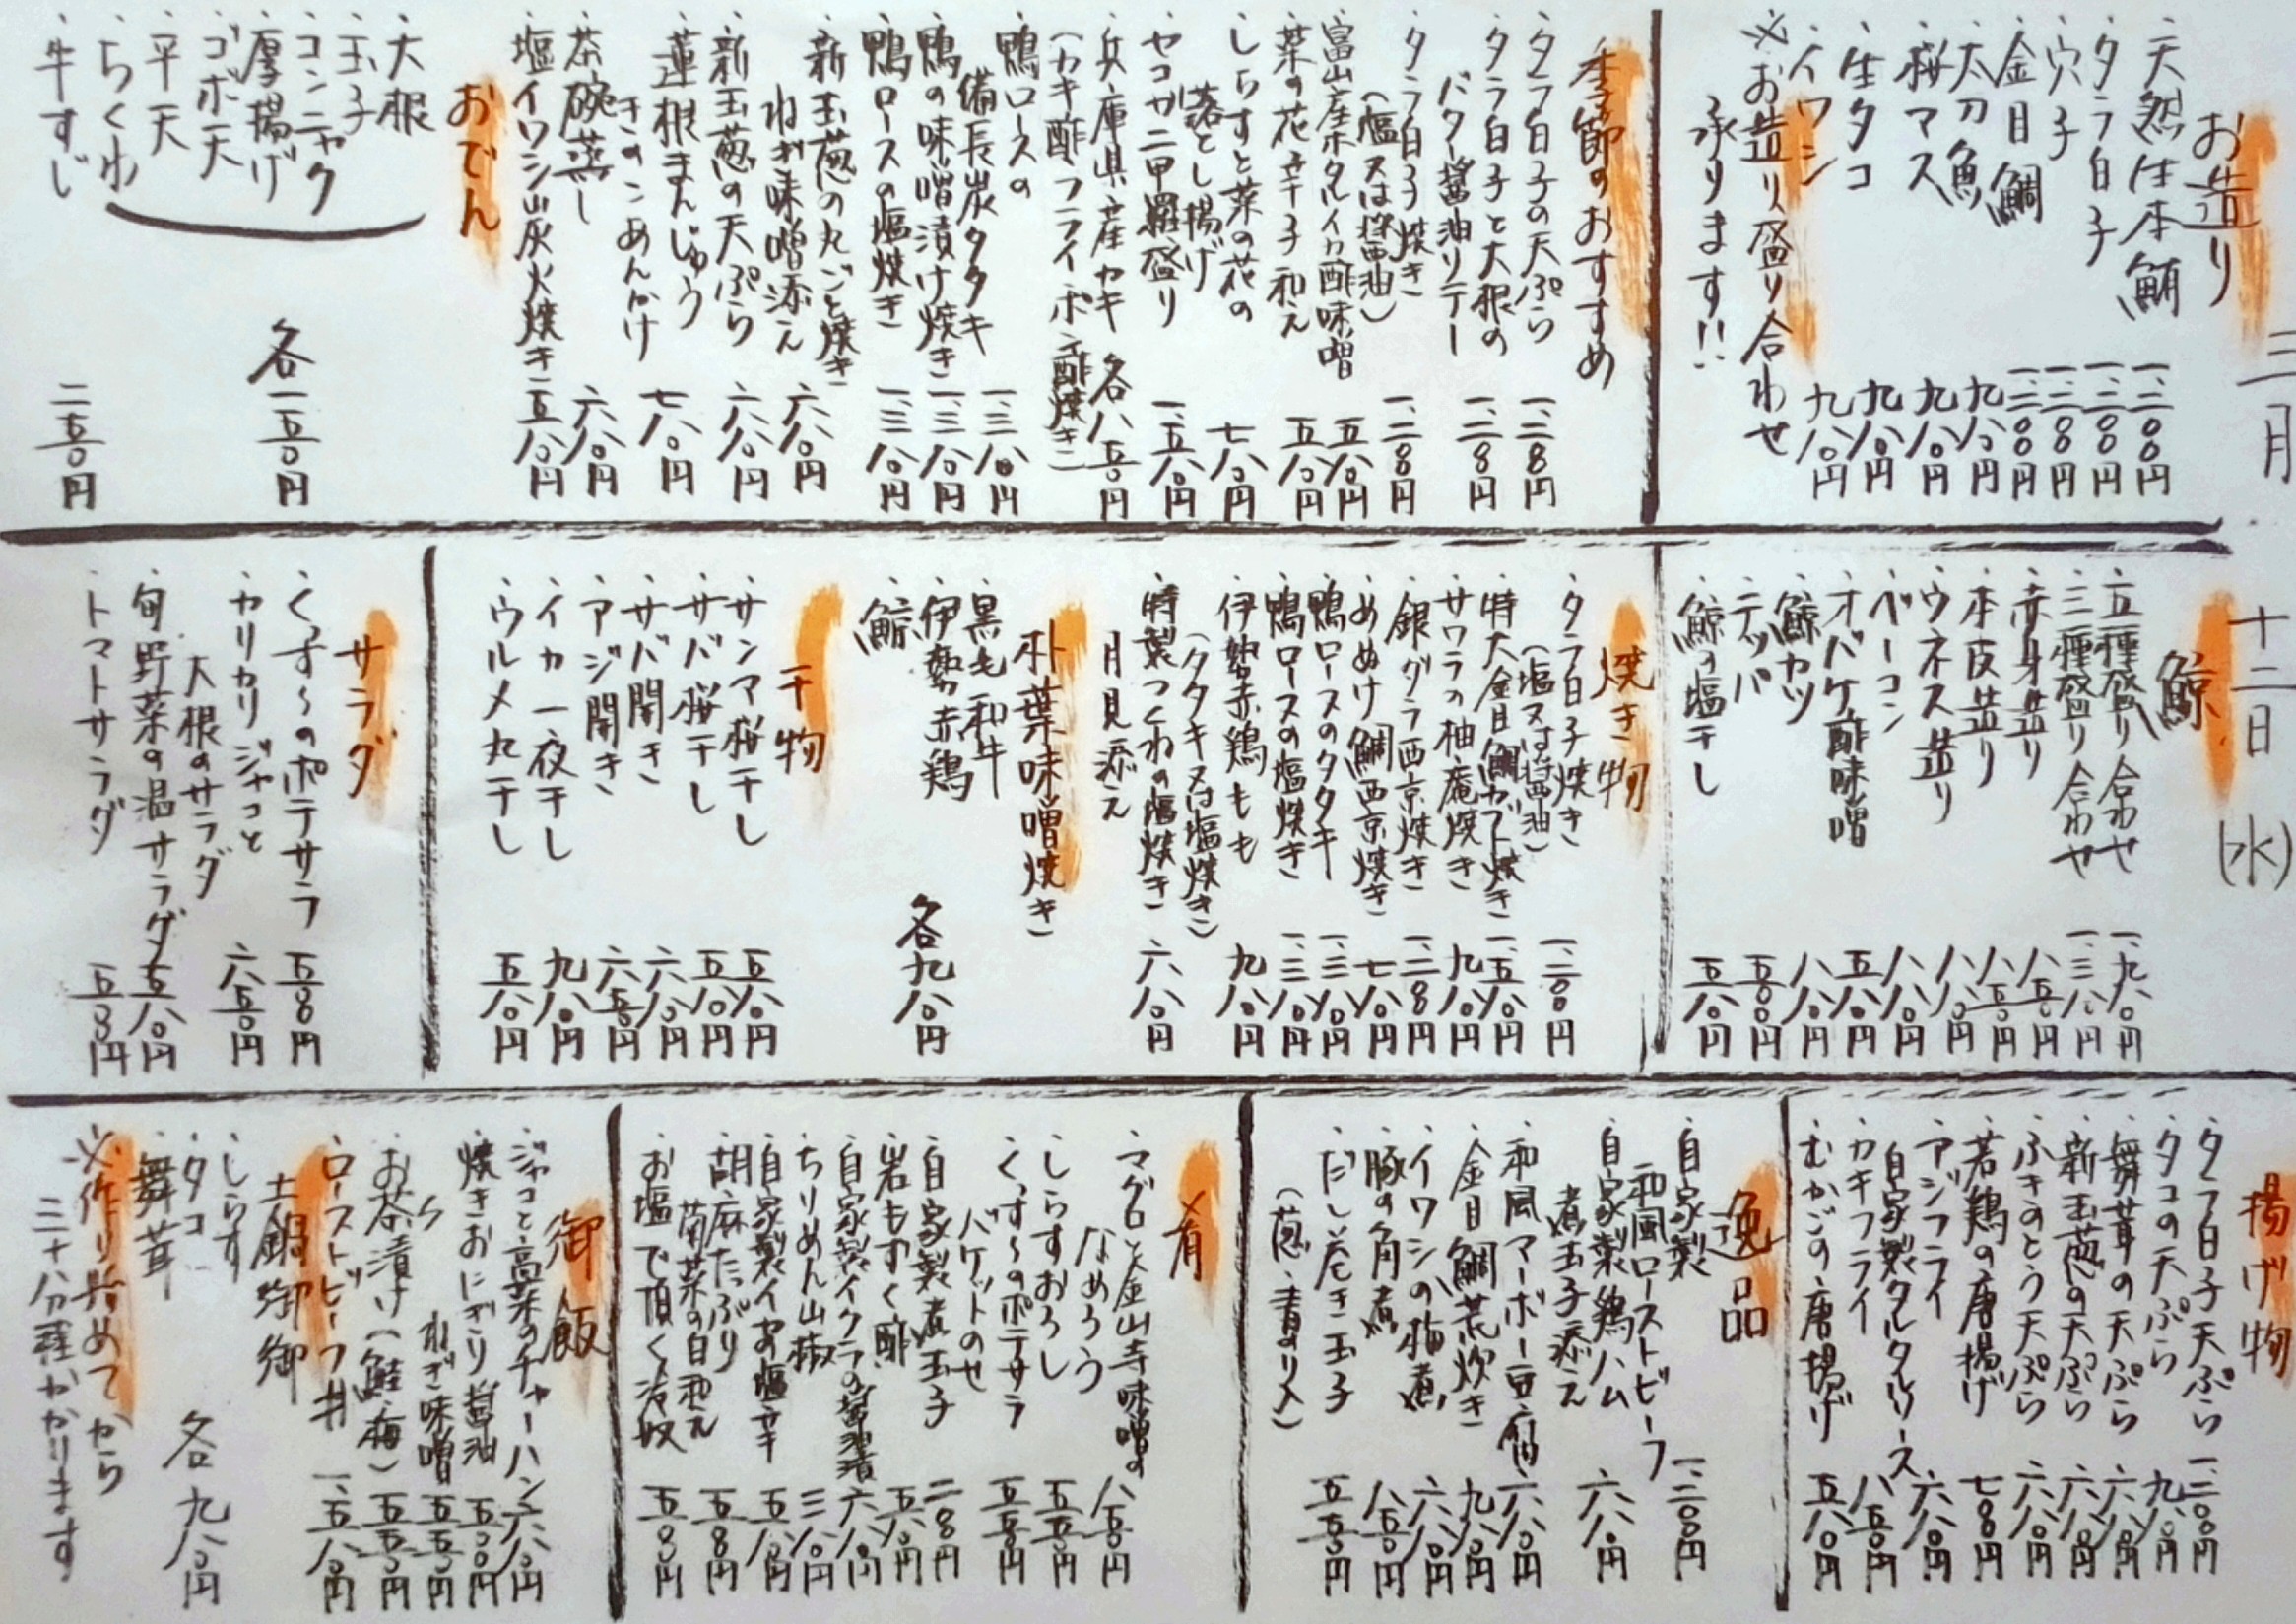 三月
十二日
(水)
お造り
・天然生本鮪 一、二〇〇円
・タラ白子 一、二〇〇円
・穴子 一、二〇〇円
・金目鯛 一、二〇〇円
・太刀魚 九八〇円
・桜マス 九八〇円
・生タコ 九八〇円
・イワシ 九八〇円
※お造り盛り合わせ
承ります!!
季節のおすすめ
・タラ白子の天ぷら 一、二〇〇円
・タラ白子と大根の
バター醤油ソテー 一、二〇〇円
・タラ白子焼き
(塩又は醤油) 一、二〇〇円
・富山産ホタルイカ酢味噌 五八〇円
・菜の花辛子和え 五八〇円
・しらすと菜の花の
落とし揚げ 七八〇円
・セコガニ甲羅盛り 一、五八〇円
・兵庫県産カキ 各八五〇円
(カキ酢・フライ・ポン酢焼き)
・鴨ロースの
備長炭タタキ 一、三八〇円
・鴨の味噌漬け焼き 一、三八〇円
・鴨ロースの塩焼き 一、三八〇円
・新玉葱の丸ごと焼き
ねぎ味噌添え 六八〇円
・新玉葱の天ぷら 六八〇円
・蓮根まんじゅう
きのこあんかけ 七八〇円
・茶碗蒸し 六八〇円
・塩イワシ炭火焼き 五八〇円
おでん
・大根
・玉子
・コンニャク
・厚揚げ
・ゴボ天
・平天
・ちくわ
各一五〇円
・牛すじ 二五〇円
鯨
・五種盛り合わせ 一、九八〇円
・三種盛り合わせ 一、三八〇円
・赤身造り 八五〇円
・本皮造り 八五〇円
・ウネス造り 八八〇円
・ベーコン 八八〇円
・オバケ酢味噌 五八〇円
・鯨カツ 八八〇円
・テッパ 五八〇円
・鯨の塩干し 五八〇円
焼き物
・タラ白子焼き
(塩又は醤油) 一、二〇〇円
・特大金目鯛カブト焼き 一、五八〇円
・サワラの柚庵焼き 九八〇円
・銀ダラ西京焼き 一、二〇〇円
・あぬけ鯛西京焼き 七八〇円
・鴨ロースのタタキ 一、三八〇円
・鴨ロースの塩焼き 一、三八〇円
・伊勢赤鶏もも
(タタキ又は塩焼き) 九八〇円
・特製つくねの塩焼き
月見添え 六八〇円
朴葉味噌焼き
・黒毛和牛
・伊勢赤鶏
・鯨
各九八〇円
干物
・サンマ桜干し 五八〇円
・サバ桜干し 五八〇円
・サバ開き 六八〇円
・アジ開き 六五〇円
・イカ一夜干し 九八〇円
・ウルメ丸干し 五八〇円
サラダ
・くっすーのポテサラ 五五〇円
・カリカリジャコと
大根のサラダ 六五〇円
・旬野菜の温サラダ 五八〇円
・トマトサラダ 五五〇円
揚げ物
・タラ白子天ぷら 一、二〇〇円
・タコの天ぷら 九八〇円
・舞茸の天ぷら 六八〇円
・新玉葱の天ぷら 六八〇円
・ふきのとう天ぷら 六八〇円
・若鶏の唐揚げ 七八〇円
・アジフライ
自家製タルタルソース 六八〇円
・カキフライ 八五〇円
・むかごの唐揚げ 五八〇円
逸品
・自家製
和風ローストビーフ 一、二〇〇円
・自家製鶏ハム
煮玉子添え 六八〇円
・和風マーボー豆腐 六八〇円
・金目鯛荒炊き 九八〇円
・イワシの梅煮 六八〇円
・豚の角煮 八五〇円
・だし巻き玉子 五五〇円
(葱・青のり入)
肴
・マグロと金山寺味噌の
なめろう 八五〇円
・しらすおろし 五五〇円
・くっすーのポテサラ
バケットのせ 五五〇円
・自家製煮玉子 二〇〇円
・岩もずく酢 五八〇円
・自家製イクラの醤油漬 六八〇円
・ちりめん山椒 三八〇円
・自家製イカ塩辛 五八〇円
・胡麻たっぷり
菊菜の白和え 五五〇円
・お塩で頂く冷奴 五五〇円
御飯
・ジャコと高菜のチャーハン 六八〇円
・焼きおにぎり醤油 五五〇円
・〃 ねぎ味噌 五五〇円
・お茶漬け(鮭・梅) 五五〇円
・ローストビーフ丼 一、五八〇円
土鍋御御
・しらす
・タコ
・舞茸
各九八〇円
※作り始めてから
三十分程かかります